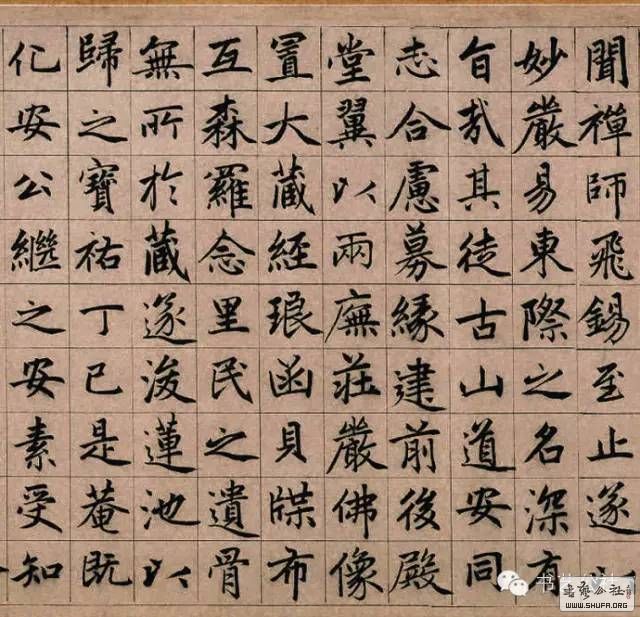 聞禪師飛錫至止遂
妙嚴易東際之名深有
旨哉其徒古山道安同
志合慮募緣建前後殿
堂翼以兩廡莊嚴佛像
置大藏經琅函貝牒布
互森羅念里民之遺骨
無所於藏遂浚蓮池以
歸之寶祐丁巳是菴既
化安公繼之安素受知
书艺公社
書藝公社
WWW.SHUFA.ORG